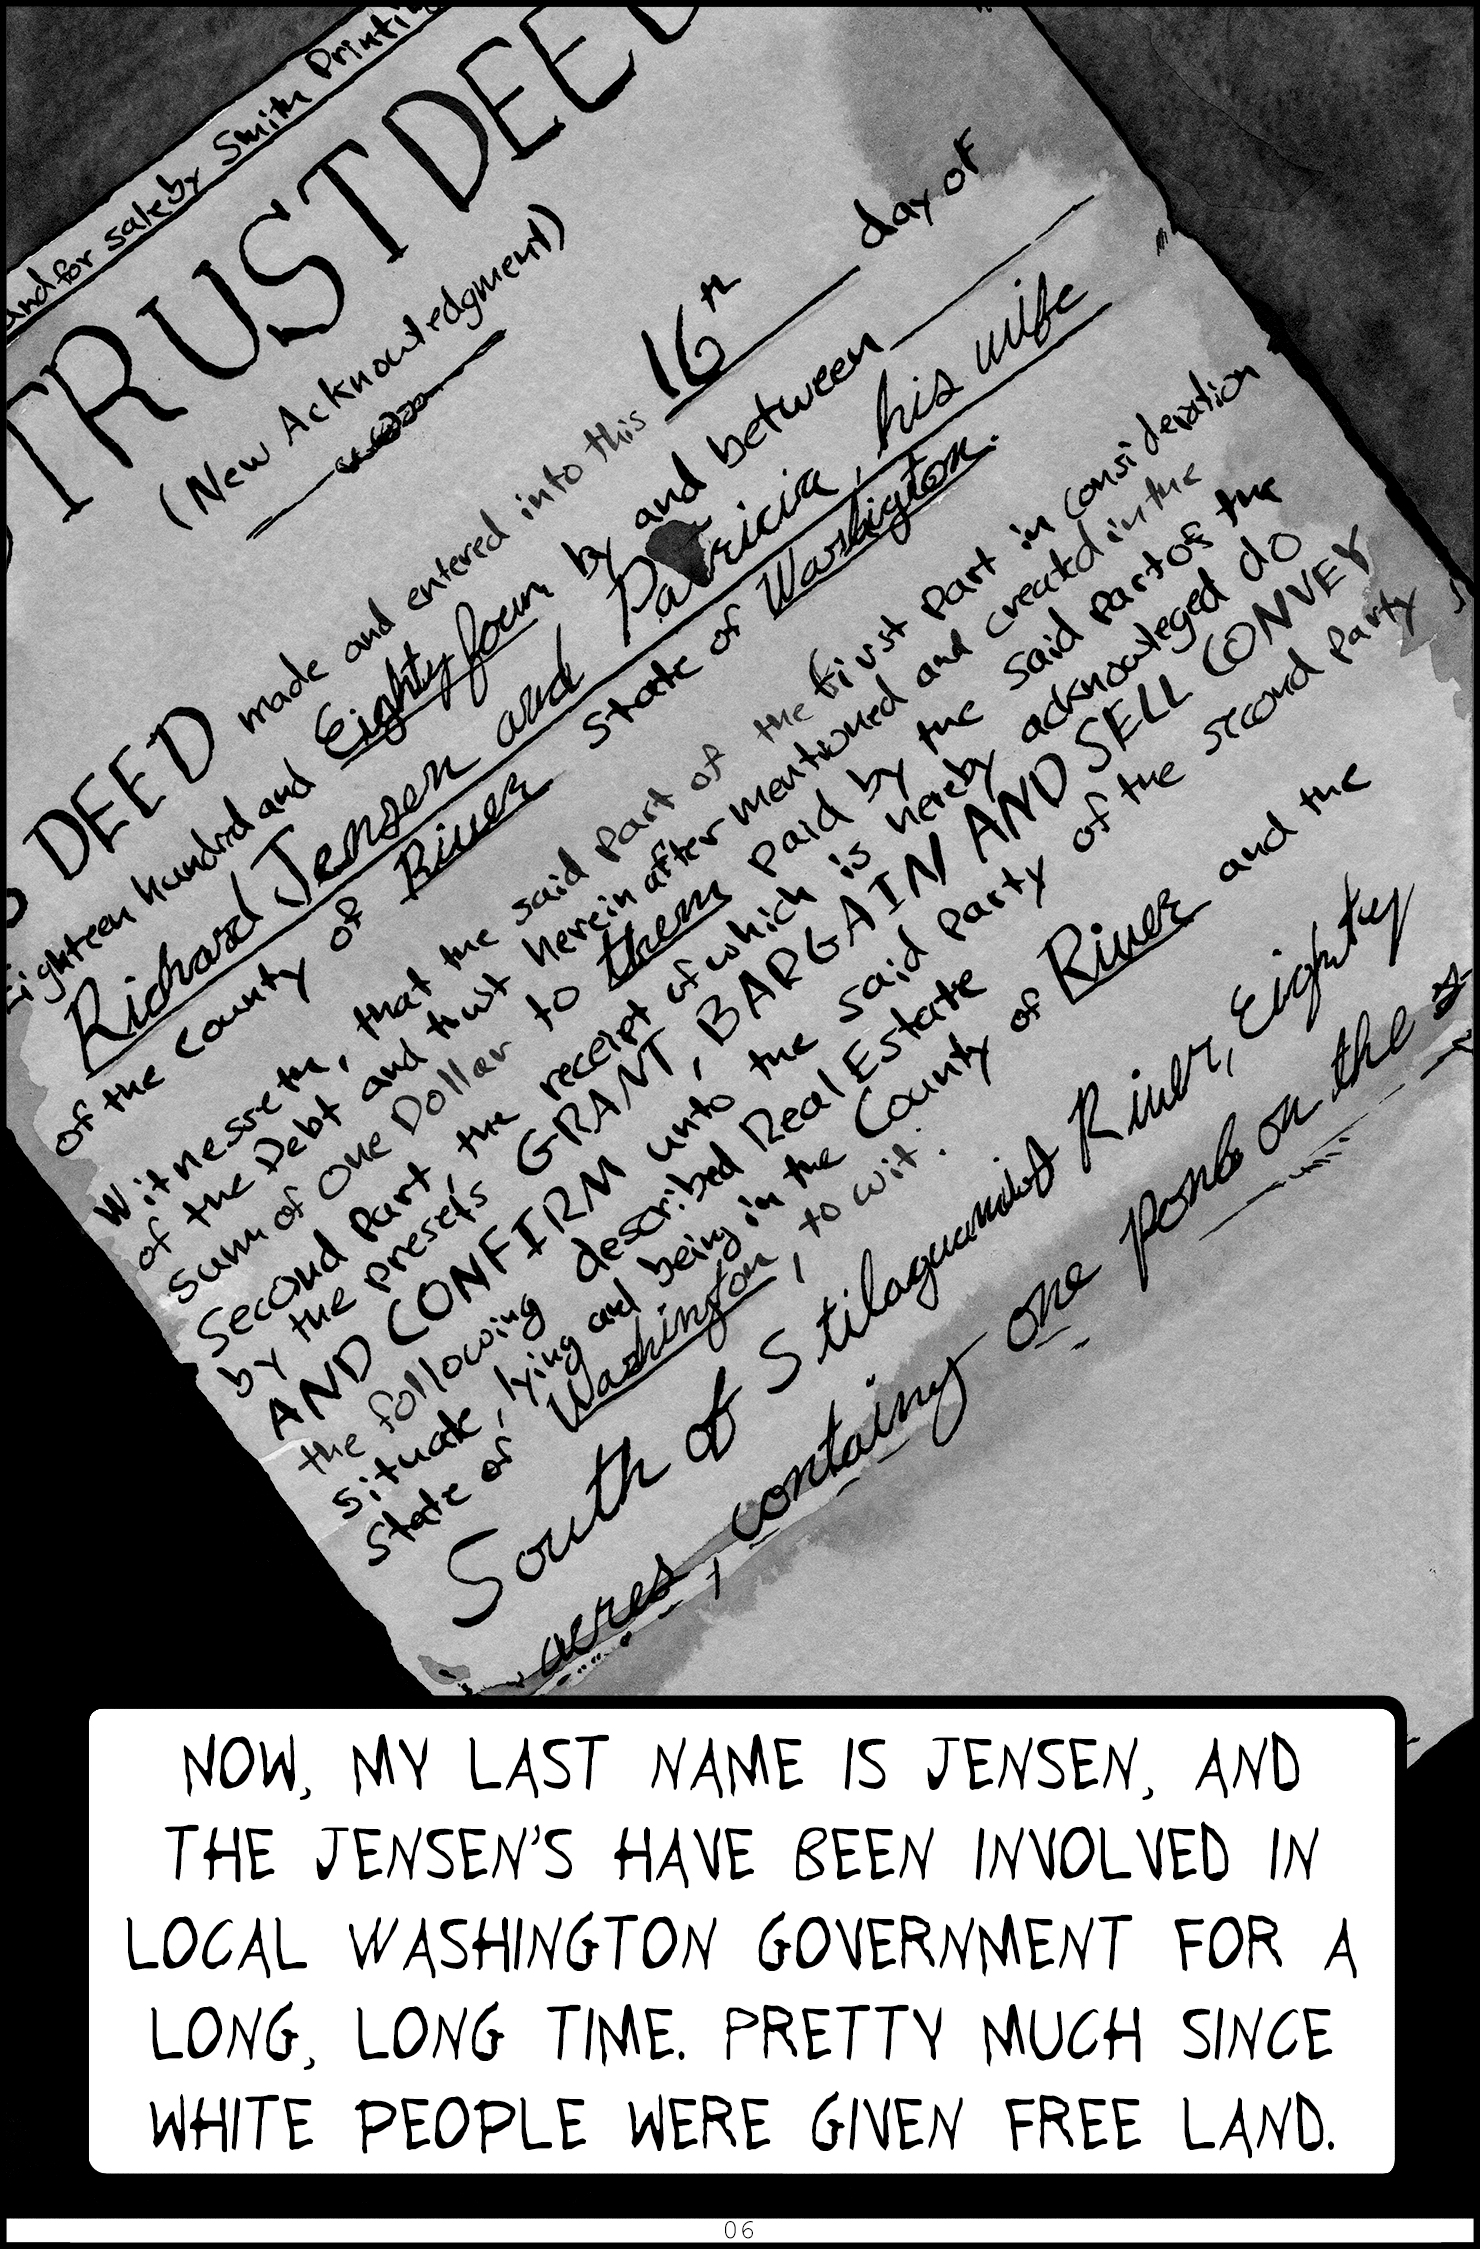 and for sale by Smith Printin
TRUST DEED
(New Acknowledgment)
DEED made and entered into this 16th day of
Eighteen hundrd and Eighty four by and between
Richard Jensen and Patricia, his wife
of the County of River State of Washington.
Witnesseth, that the said Part of the first Part in consideration
of the Debt and trust herein after mentioned and created in the
sum of one Dollar to them paid by the said part of the
Second Part, the receipt of which is hereby acknowleged do
by the presets GRANT, BARGAIN AND SELL CONVEY
AND CONFIRM unto the said party of the second Party
the following described Real Estate
situate, lying and being in the County of River and the
State of Washington, to wit:
South of Stilaguamish River, Eighty
acres, containing one ponb on the
NOW, MY LAST NAME IS JENSEN, AND
THE JENSEN'S HAVE BEEN INVOLVED IN
LOCAL WASHINGTON GOVERNMENT FOR A
LONG, LONG TIME. PRETTY MUCH SINCE
WHITE PEOPLE WERE GIVEN FREE LAND.
06